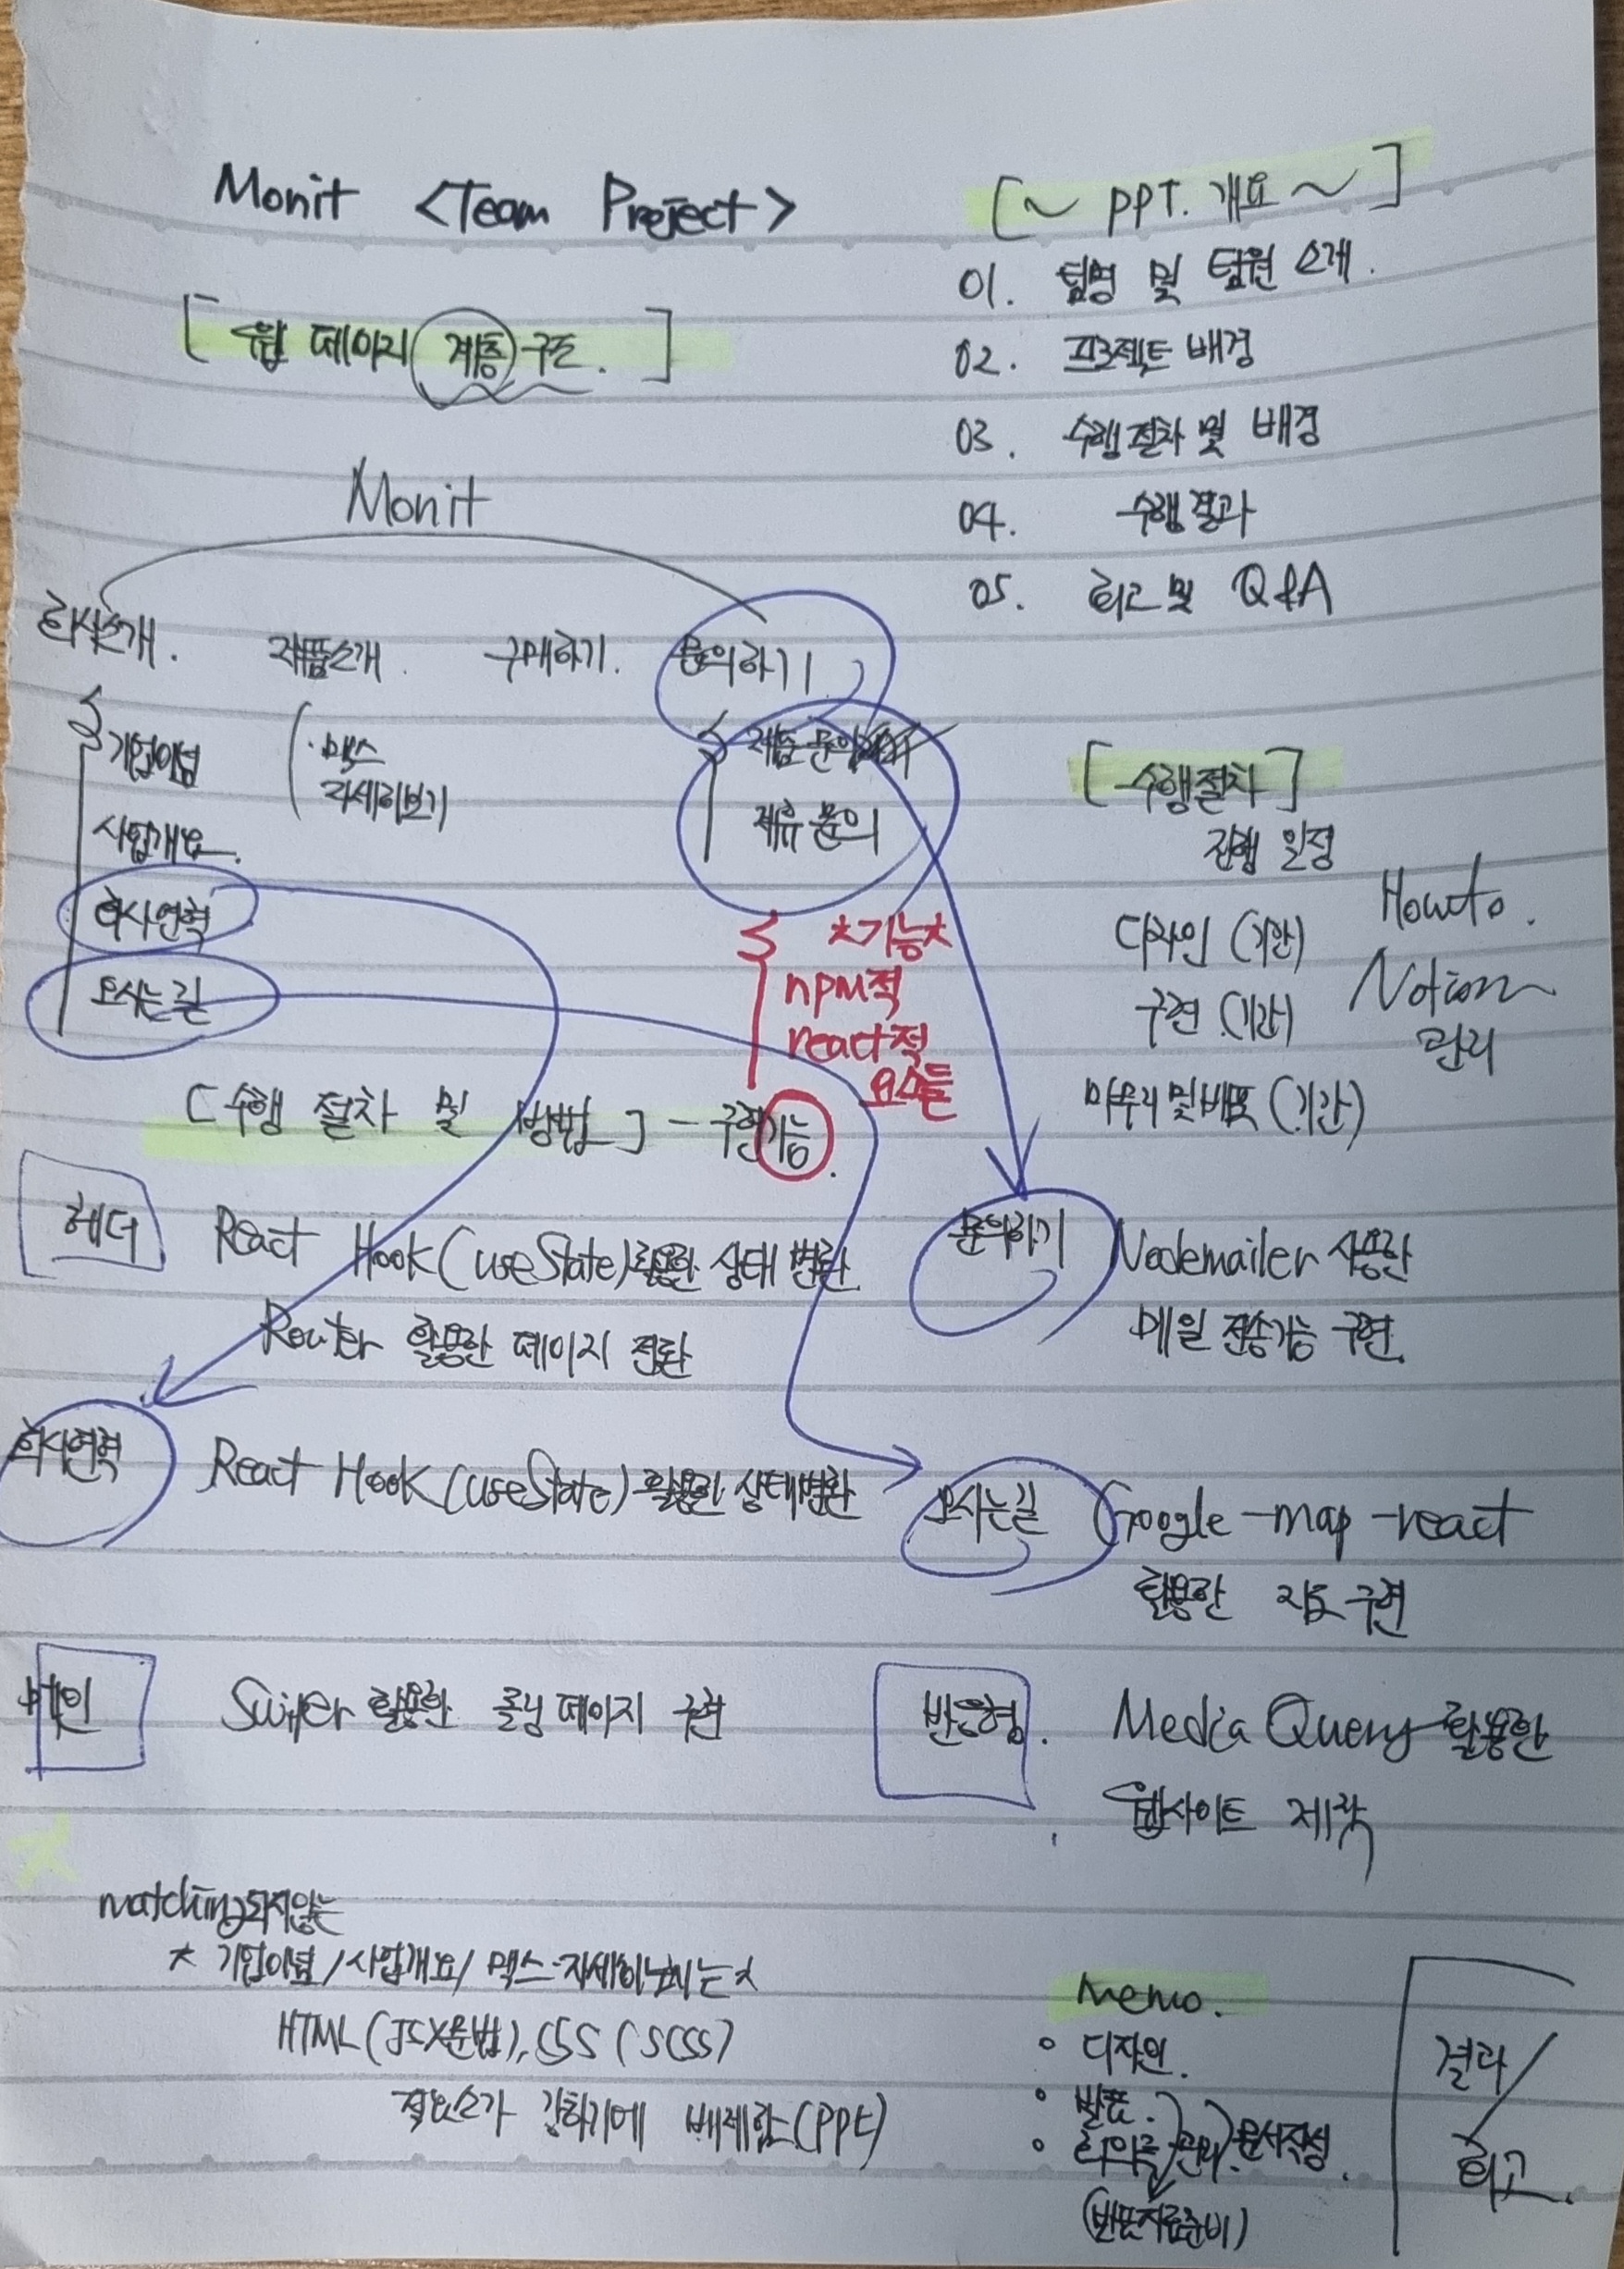 Monit <Team Project>
[ 웹 페이지 계층 구조. ]
Monit
회사소개.
제품소개.
구매하기.
문의하기
기업이념
사업개요.
회사연혁
오시는길
· 맥스
자세히보기
제품 문의
제휴 문의
*기능*
npm적
react적
요소들
[~ PPT. 개요 ~]
01. 팀명 및 팀원 소개.
02. 프로젝트 배경
03. 수행절차 및 배경
04. 수행결과
05. 회고 및 Q&A
[ 수행절차 ]
진행 일정
디자인 (기간)
구현 (기간)
마무리 및 배포 (기간)
How to.
Notion
관리
[ 수행 절차 및 방법 ] - 구현기능.
헤더
React Hook(useState)활용한 상태 변환
Router 활용한 페이지 전환
문의하기
Nodemailer 사용한
메일 전송기능 구현.
회사연혁
React Hook(useState)활용한 상태변환
오시는길
Google-map-react
활용한 지도 구현
메인
Swiper 활용한 롤링 페이지 구현
반응형.
Media Query 활용한
웹사이트 제작
matching되지않는
* 기업이념 / 사업개요 / 맥스-자세히보기는*
HTML(JSX문법), CSS (SCSS)
적요소가 강하기에 배제함(PPt)
Memo.
• 디자인.
• 발표.
• 회의록 관리. 문서작성.
(발표자료준비)
결과/
회고.